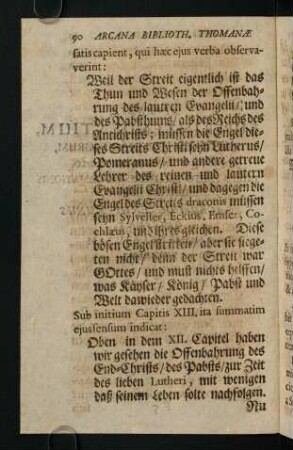 90 ARCANA BIBLIOTH. THOMANÆ
satis capient, qui hæc ejus verba observa-
verint:
Weil der Streit eigentlich ist das
Thun und Wesen der Offenbah-
rung des lautern Evangelii/ und
des Pabsthums/ als des Reichs des
Antichrists: müssen die Engel die-
ses Streits Christi seyn Lutherus/
Pomeranus/ und andere getreue
Lehrer des reinen und lautern
Evangelii Christi/ und dagegen die
Engel des Streits draconis müssen
seyn Sylvester, Eckius, Emser, Co-
chlæus, und ihres gleichen. Diese
bösen Engel stritten/ aber sie siege-
ten nicht/ denn der Streit war
GOttes/ und must nichts helffen/
was Käyser/ König/ Pabst und
Welt dawieder gedachten.
Sub initium Capitis XIII, ita summatim
ejus sensum indicat:
Oben in dem XII. Capitel haben
wir gesehen die Offenbahrung des
End-Christs/ des Pabsts/ zur Zeit
des lieben Lutheri, mit wenigen
daß seinem Leben solte nachfolgen.
Nu